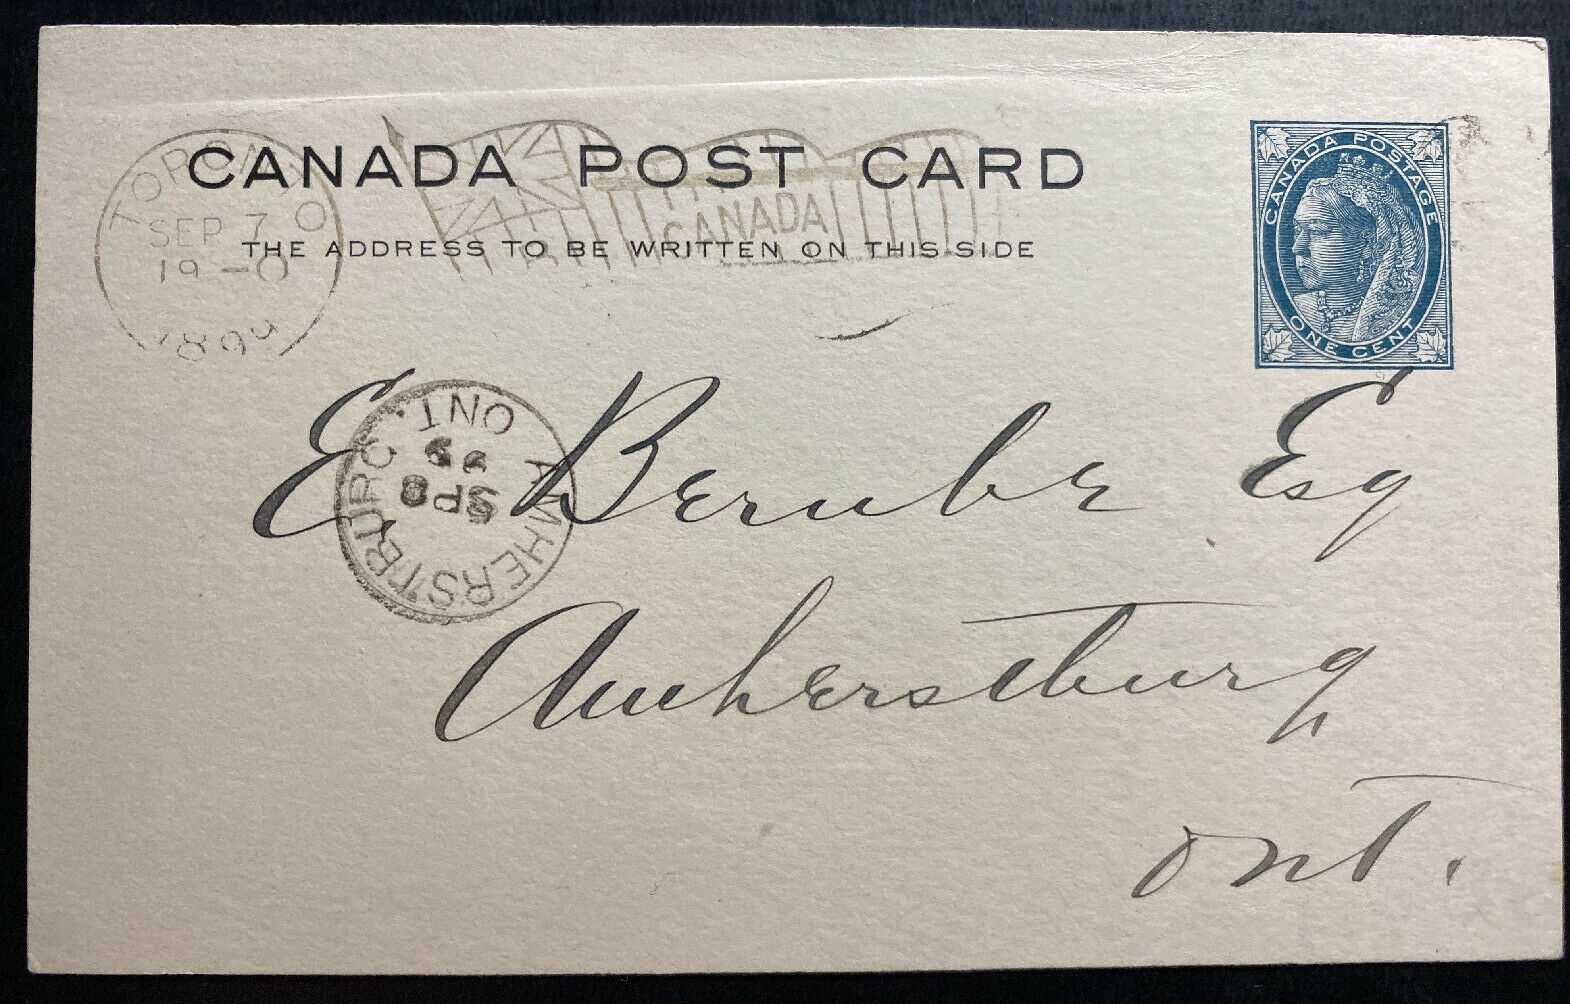 CANADA POST CARD
THE ADDRESS TO BE WRITTEN ON THIS SIDE
TORONTO
SEP 7
19-0
1899
CANADA
CANADA POSTAGE
ONE CENT
AMHERSTBURG. ONT.
SP 8
99
E. Berube Esq
Amherstburg
Ont.